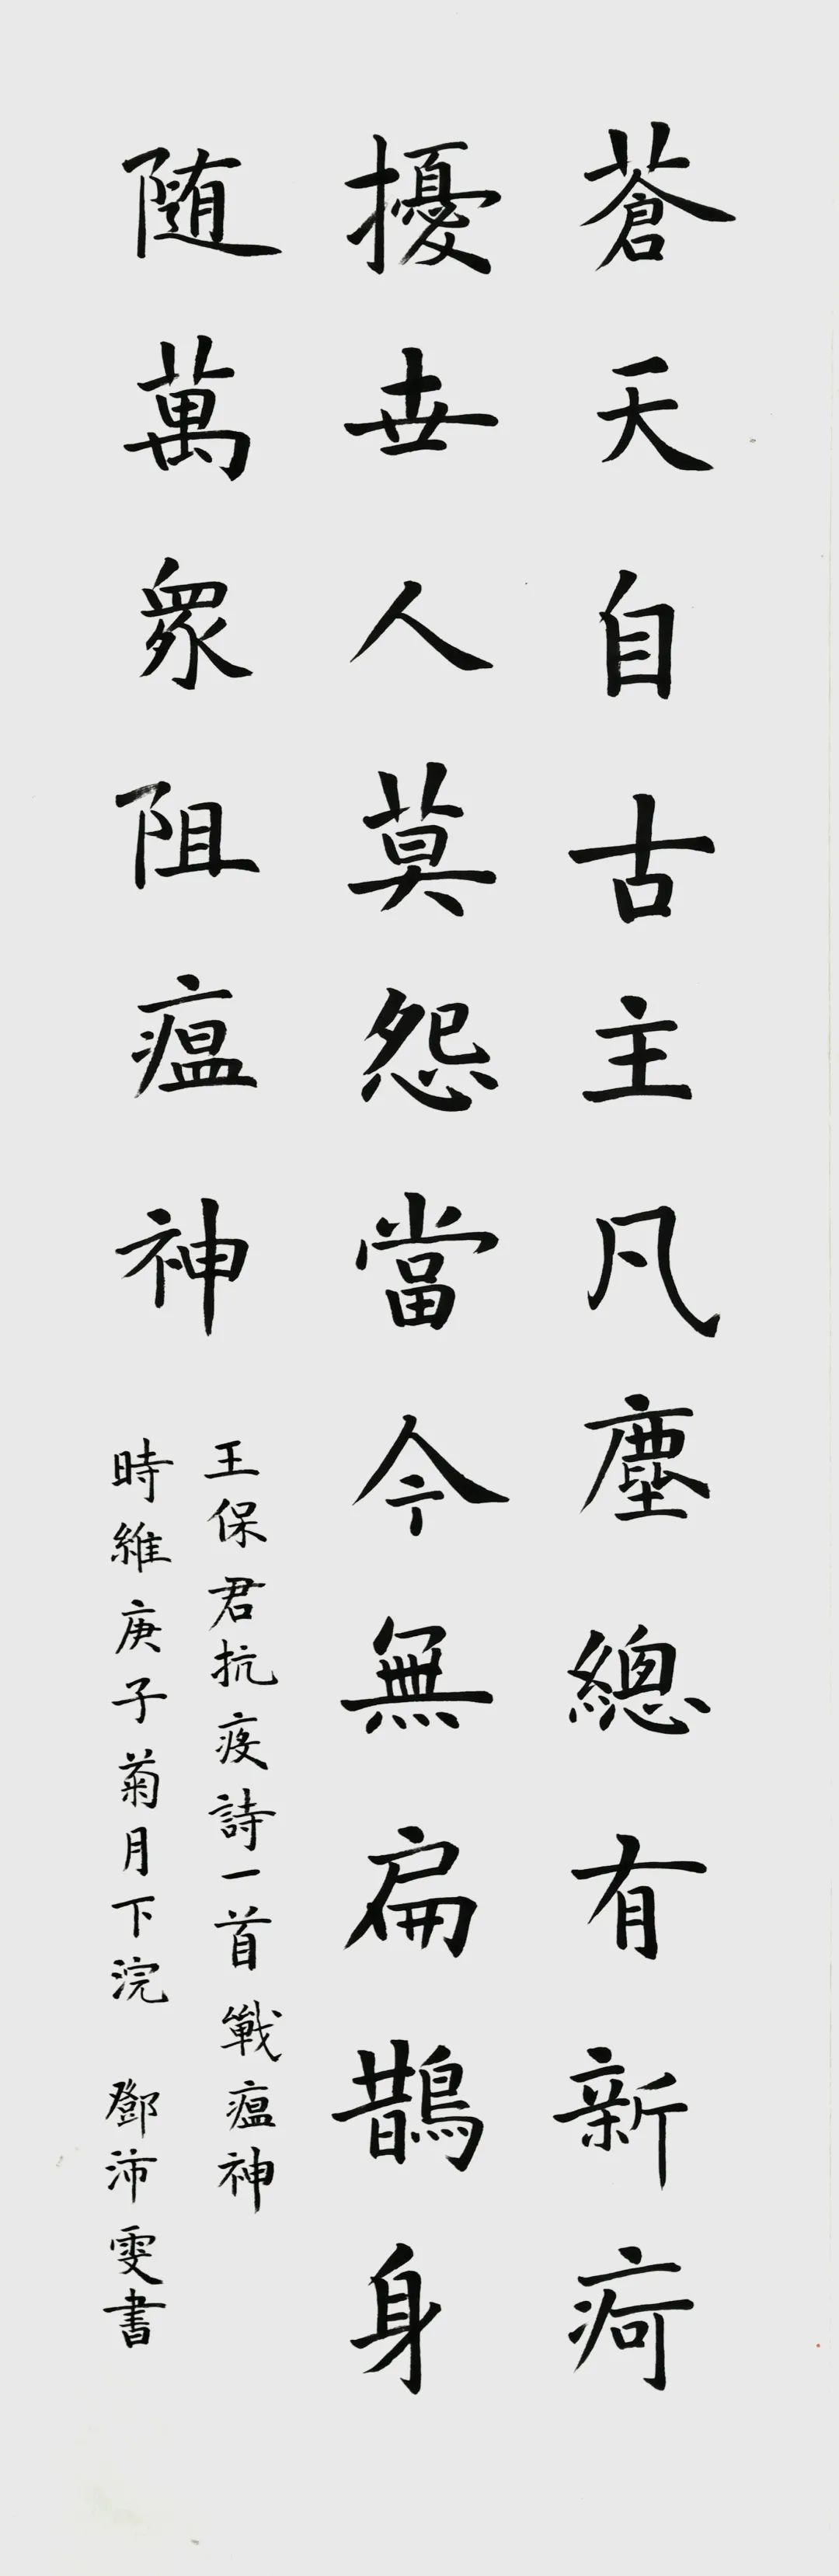 蒼天自古主凡塵總有新疴
擾世人莫怨當今無扁鵲身
随萬衆阻瘟神
王保君抗疫詩一首戰瘟神
時維庚子菊月下浣 鄧沛雯書